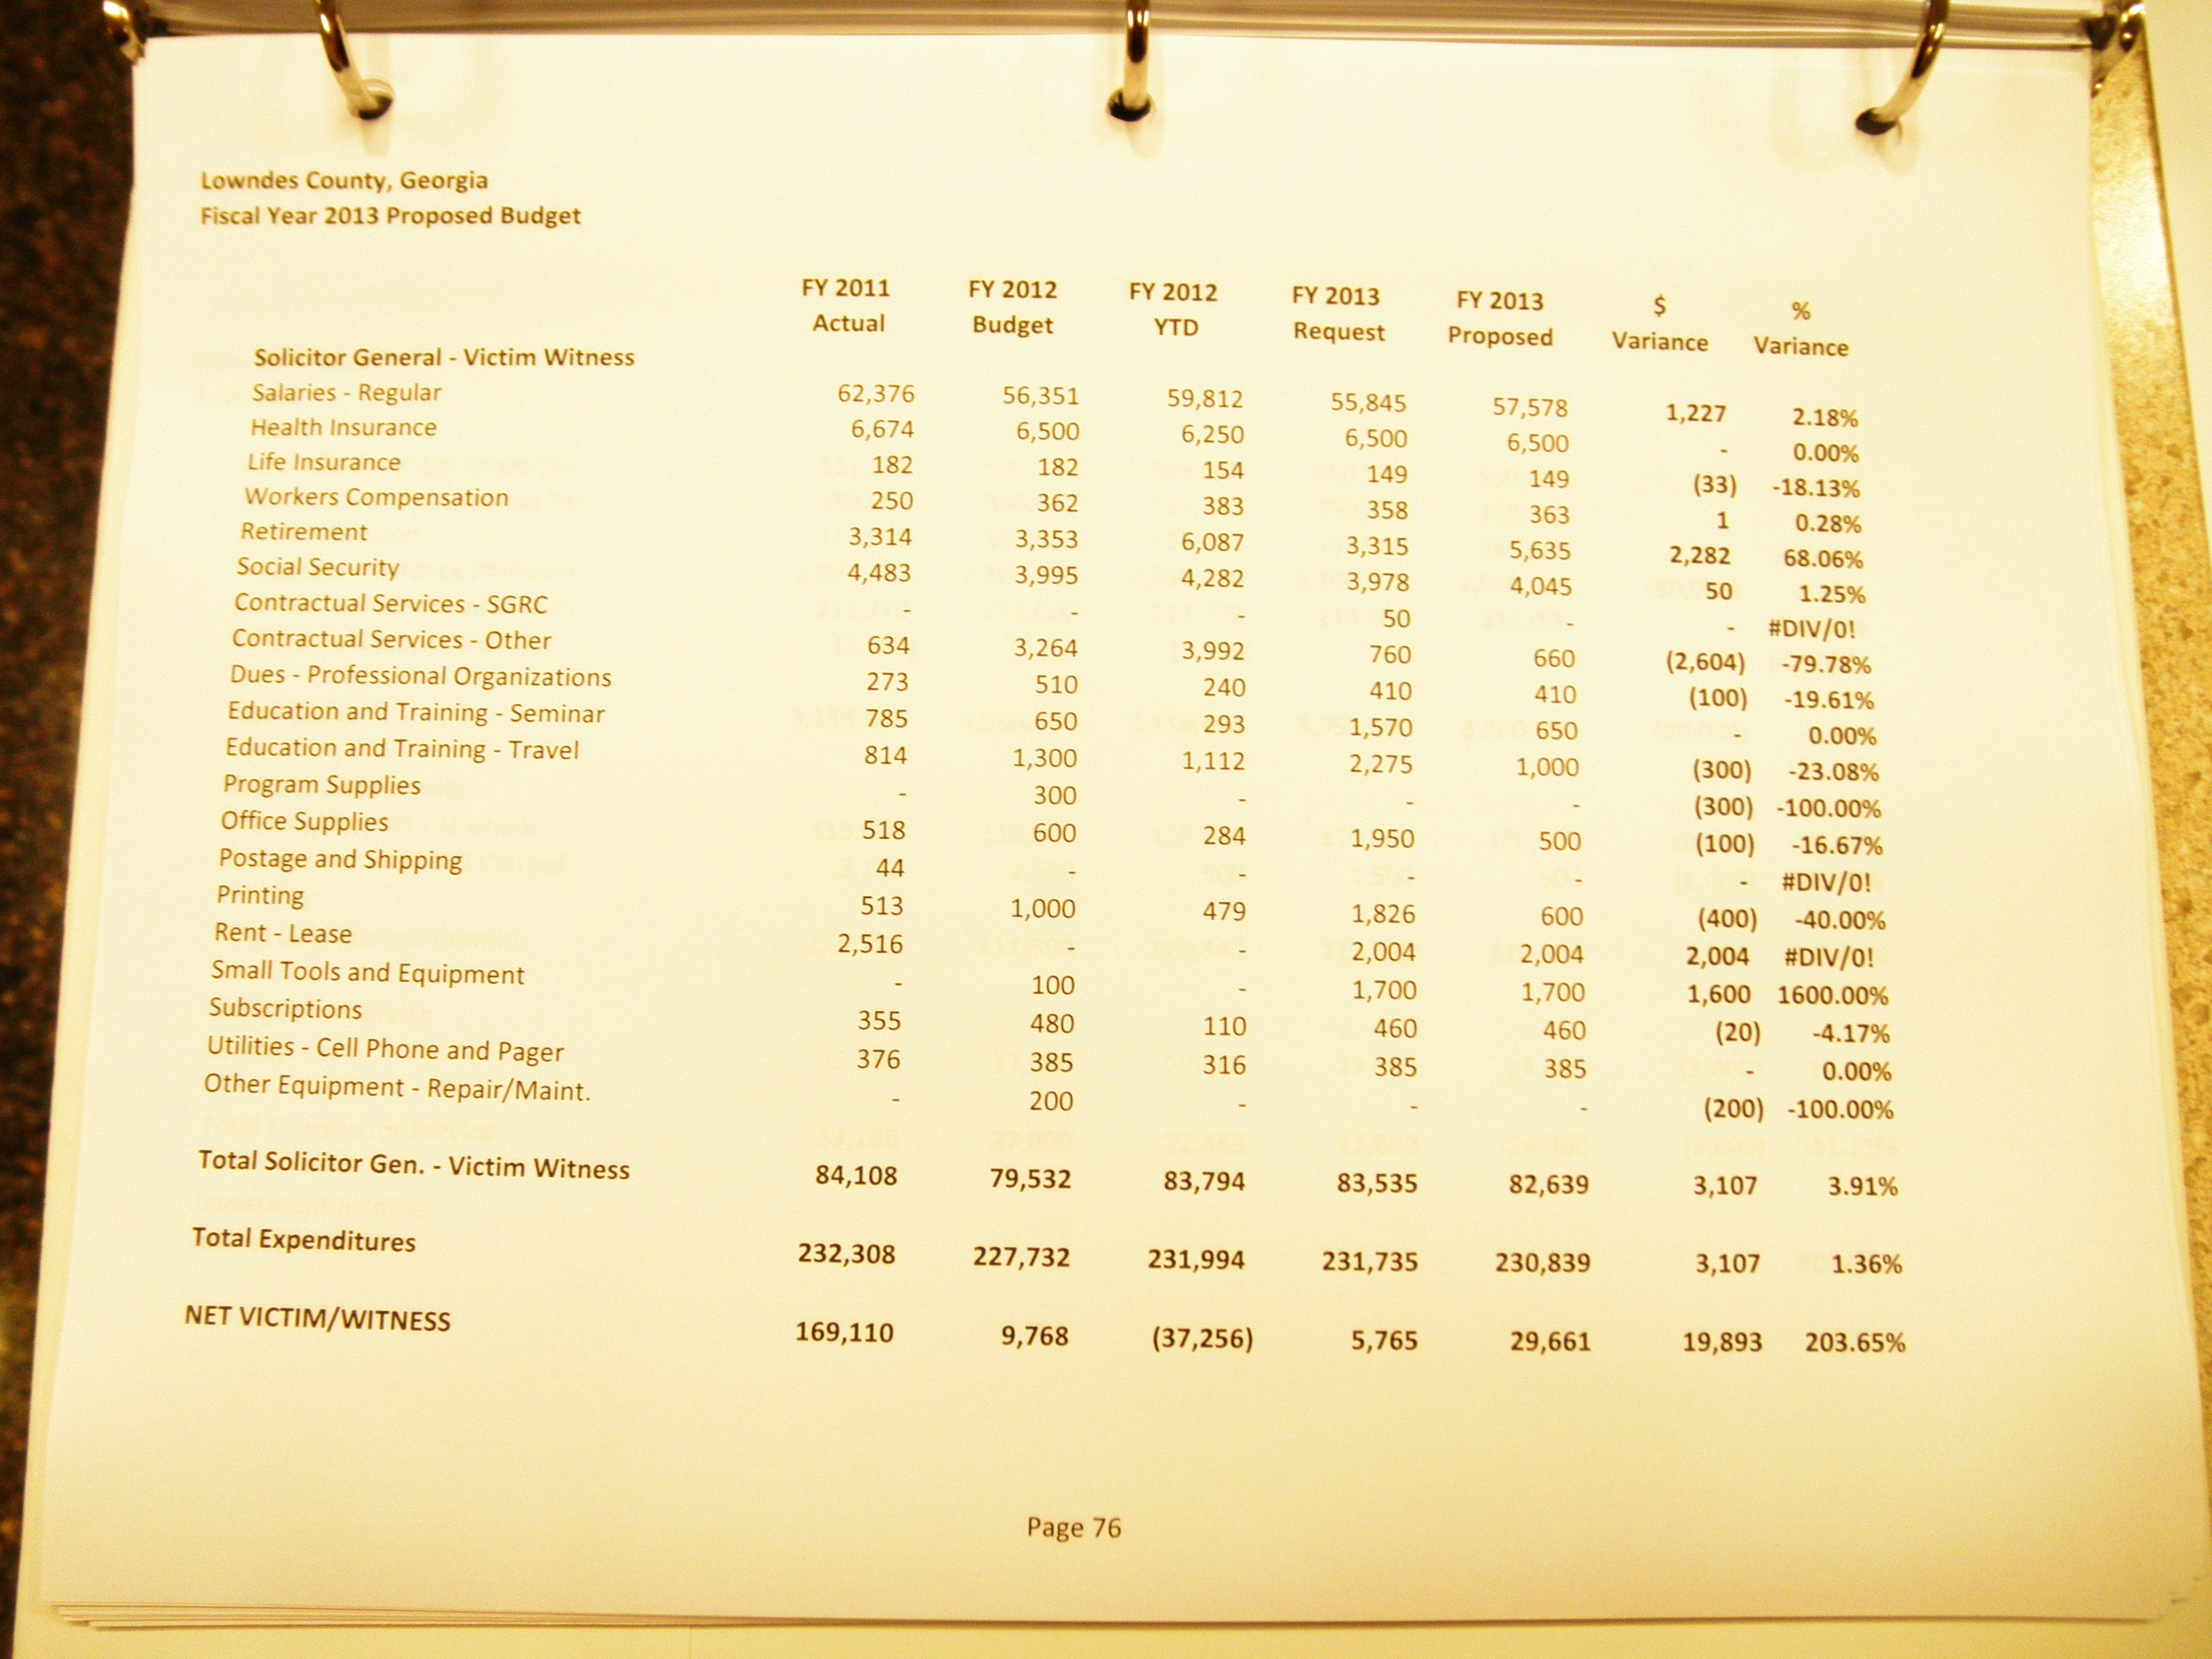 Lowndes County, Georgia
Fiscal Year 2013 Proposed Budget
FY 2011 FY 2012 FY 2012 FY 2013 FY 2013 $ %
Actual Budget YTD Request Proposed Variance Variance
Solicitor General - Victim Witness
Salaries - Regular 62,376 56,351 59,812 55,845 57,578 1,227 2.18%
Health Insurance 6,674 6,500 6,250 6,500 6,500 - 0.00%
Life Insurance 182 182 154 149 149 (33) -18.13%
Workers Compensation 250 362 383 358 363 1 0.28%
Retirement 3,314 3,353 6,087 3,315 5,635 2,282 68.06%
Social Security 4,483 3,995 4,282 3,978 4,045 50 1.25%
Contractual Services - SGRC - - - 50 - - #DIV/0!
Contractual Services - Other 634 3,264 3,992 760 660 (2,604) -79.78%
Dues - Professional Organizations 273 510 240 410 410 (100) -19.61%
Education and Training - Seminar 785 650 293 1,570 650 - 0.00%
Education and Training - Travel 814 1,300 1,112 2,275 1,000 (300) -23.08%
Program Supplies - 300 - - - (300) -100.00%
Office Supplies 518 600 284 1,950 500 (100) -16.67%
Postage and Shipping 44 - - - - - #DIV/0!
Printing 513 1,000 479 1,826 600 (400) -40.00%
Rent - Lease 2,516 - - 2,004 2,004 2,004 #DIV/0!
Small Tools and Equipment - 100 - 1,700 1,700 1,600 1600.00%
Subscriptions 355 480 110 460 460 (20) -4.17%
Utilities - Cell Phone and Pager 376 385 316 385 385 - 0.00%
Other Equipment - Repair/Maint. - 200 - - - (200) -100.00%
Total Solicitor Gen. - Victim Witness 84,108 79,532 83,794 83,535 82,639 3,107 3.91%
Total Expenditures 232,308 227,732 231,994 231,735 230,839 3,107 1.36%
NET VICTIM/WITNESS 169,110 9,768 (37,256) 5,765 29,661 19,893 203.65%
Page 76